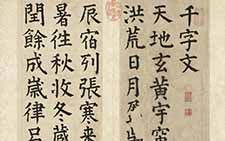 千字文
天地玄黃宇
洪荒日月
辰宿列張寒来
暑徃秋收冬蔵
閏餘成歲律吕